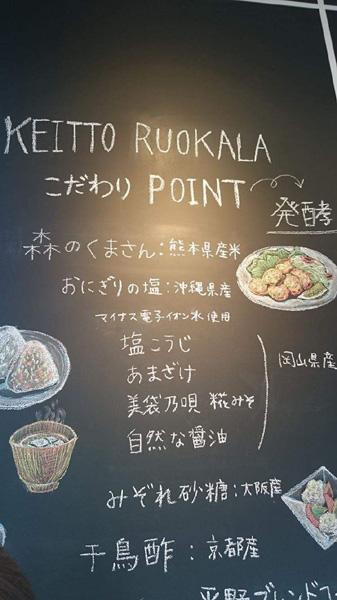 KEITTO RUOKALA
こだわり POINT
発酵
森のくまさん:熊本県産米
おにぎりの塩:沖縄県産
マイナス電子イオン水使用
塩こうじ
あまざけ
美袋乃唄 糀みそ
自然な醤油
岡山県産
みぞれ砂糖:大阪産
千鳥酢:京都産
平野ブレンドコ